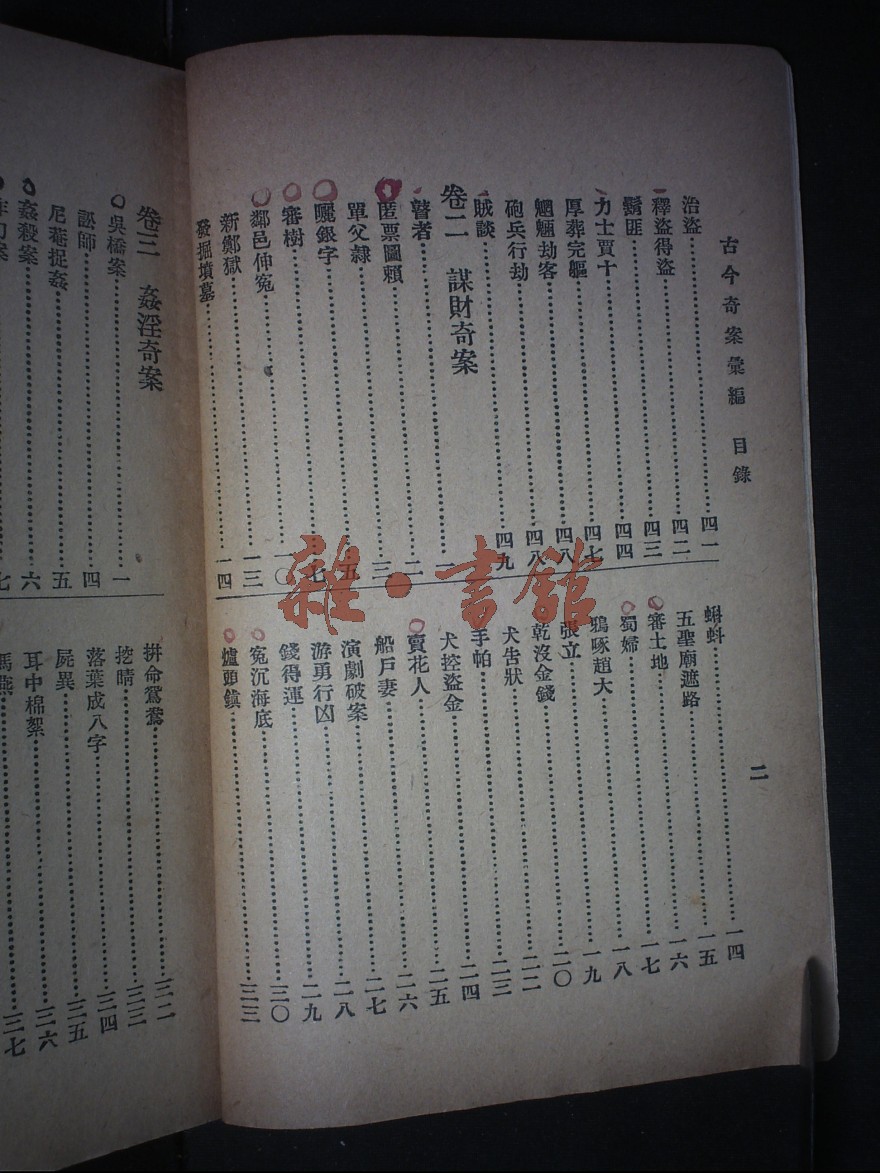 古今奇案彙編　目錄
二
治盜……四一
釋盜得盜……四二
鬍匪……四三
力士賈十……四四
厚葬完軀……四七
魍魎劫客……四八
砲兵行劫……四八
賊談……四九
卷二　謀財奇案
瞽者……一
匿票圖賴……二
單父隸……三
曬銀字……五
審樹……七
鄰邑伸冤……一〇
新鄭獄……一三
發掘墳墓……一四
蝌蚪……一四
五聖廟遮路……一五
審土地……一六
蜀婦……一七
鴉啄趙大……一八
張立……一九
乾沒金錢……二〇
犬告狀……二二
手帕……二三
犬控盜金……二四
賣花人……二五
船戶妻……二六
演劇破案……二七
游勇行凶……二八
錢得運……二九
冤沉海底……三〇
爐頭鎮……三三
卷三　姦淫奇案
吳橋案……一
訟師……四
尼菴捉姦……五
姦殺案……六
幻案……七
拼命鴛鴦……三二
挖睛……三三
落葉成八字……三四
屍異……三五
耳中棉絮……三六
燕……三七
雜·書館